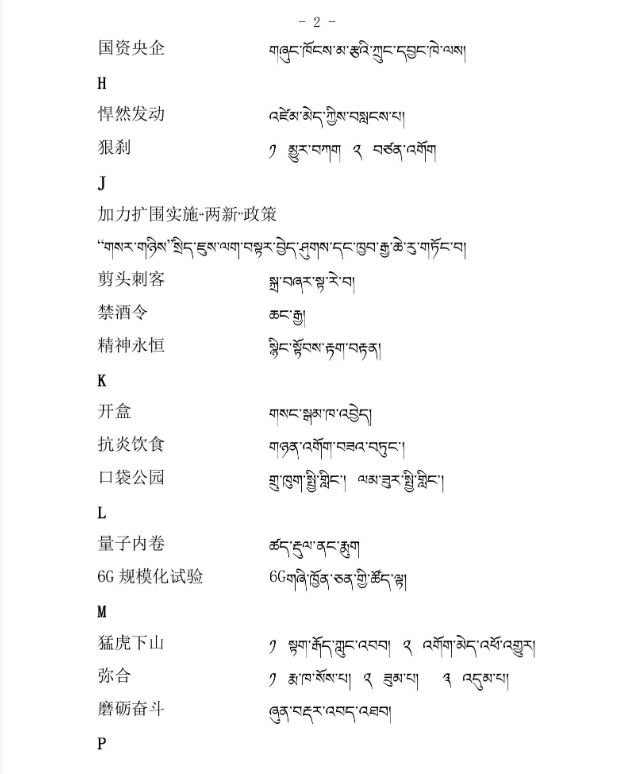 - 2 -
国资央企 གཞུང་ཁོངས་མ་རྩའི་ཀྲུང་དབྱང་ཁེ་ལས།
H
悍然发动 འཛེམ་མེད་ཀྱིས་བསླངས་པ།
狠刹 ༡ མྱུར་བཀག ༢ བཙན་འགོག
J
加力扩围实施“两新”政策
“གསར་གཉིས”སྲིད་ཇུས་ལག་བསྟར་བྱེད་ཤུགས་དང་ཁྱབ་རྒྱ་ཆེ་རུ་གཏོང་བ།
剪头刺客 སྐྲ་བཞར་སྟ་རེ་བ།
禁酒令 ཆང་རྒྱ།
精神永恒 སྙིང་སྟོབས་རྟག་བརྟན།
K
开盒 གསང་སྒམ་ཁ་འབྱེད།
抗炎饮食 གཉན་འགོག་བཟའ་བཏུང་།
口袋公园 གྲུ་ཁུག་སྤྱི་གླིང་། ལམ་ཟུར་སྤྱི་གླིང་།
L
量子内卷 ཚད་རྡུལ་ནང་རྨུག
6G 规模化试验 6Gགཞི་ཁྱོན་ཅན་གྱི་ཚོད་ལྟ།
M
猛虎下山 ༡ སྟག་རྒོད་ཀླུང་འབབ། ༢ འགོག་མེད་འཕོ་འགྱུར།
弥合 ༡ རྨ་ཁ་སོས་པ། ༢ ཟུམ་པ། ༣ འདུམ་པ།
磨砺奋斗 ཞུན་བརྡར་འབད་འཐབ།
P